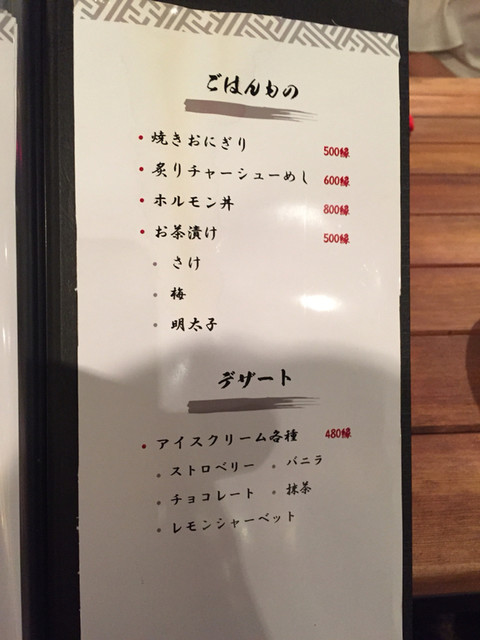 ごはんもの
・焼きおにぎり 500縁
・炙りチャーシューめし 600縁
・ホルモン丼 800縁
・お茶漬け 500縁
・さけ
・梅
・明太子
デザート
・アイスクリーム各種 480縁
・ストロベリー ・バニラ
・チョコレート ・抹茶
・レモンシャーベット